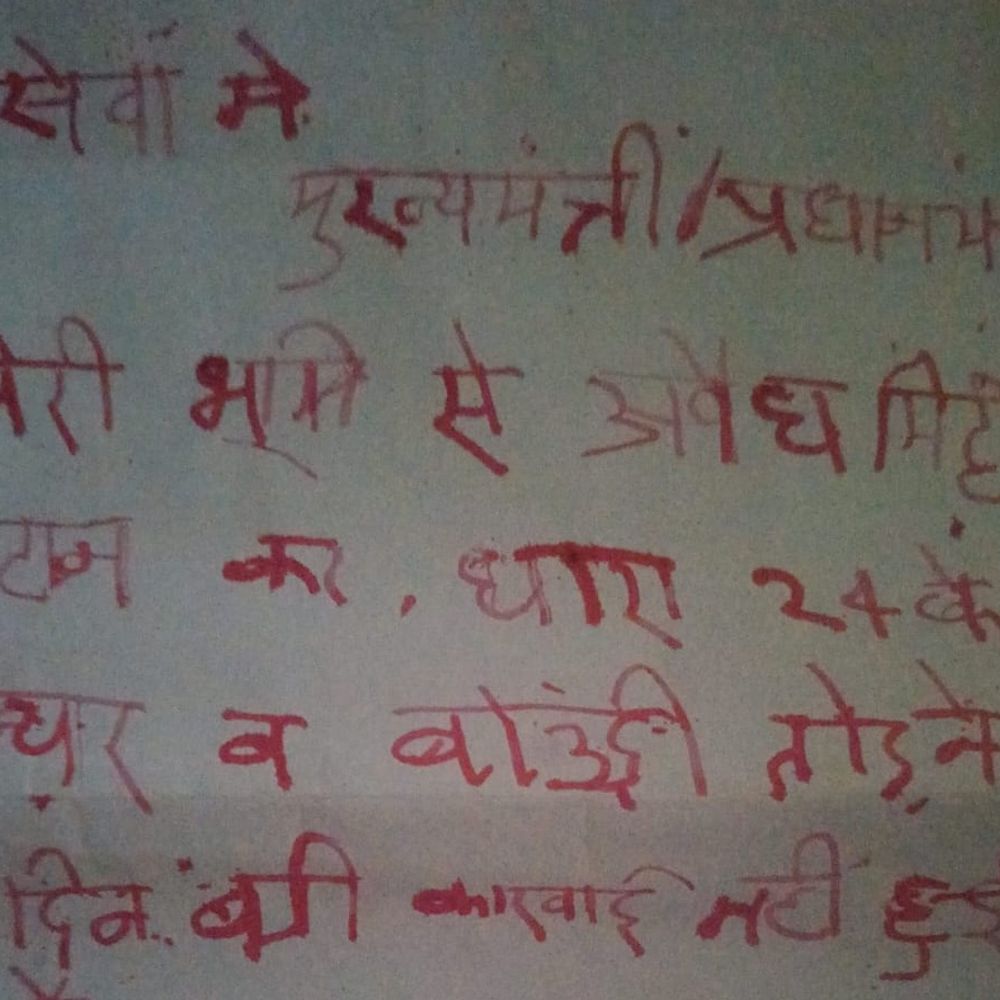 सेवां मे
मुख्यमंत्री/प्रधानमं
मेरी भूमि से अवैध मिट्ट
टान कर, धारा 24 के
थर व बांउड्री तोड़ने
दिन. कारवाई नहीं हुई